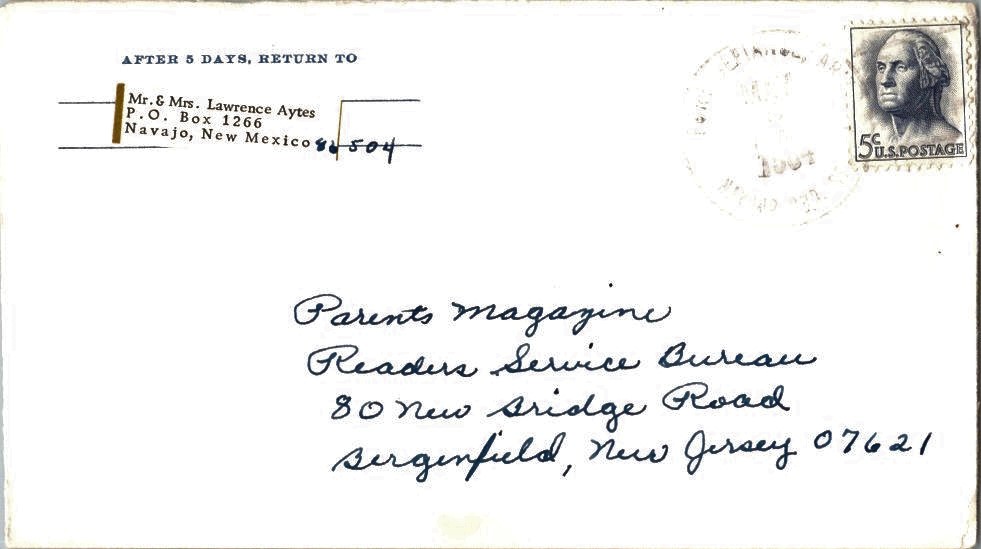 AFTER 5 DAYS, RETURN TO
Mr. & Mrs. Lawrence Aytes
P.O. Box 1266
Navajo, New Mexico 86504
5c U.S. POSTAGE
Parents Magazine
Readers Service Bureau
80 New Bridge Road
Bergenfield, New Jersey 07621